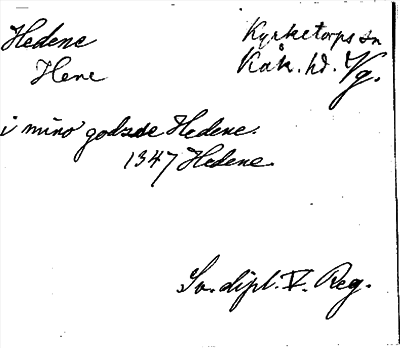 Hedene
Hene
Kyrketorps sn
Kåk. hd. Vg.
i mino godzse Hedene.
1347 Hedene.
Sv. dipl. V. Reg.